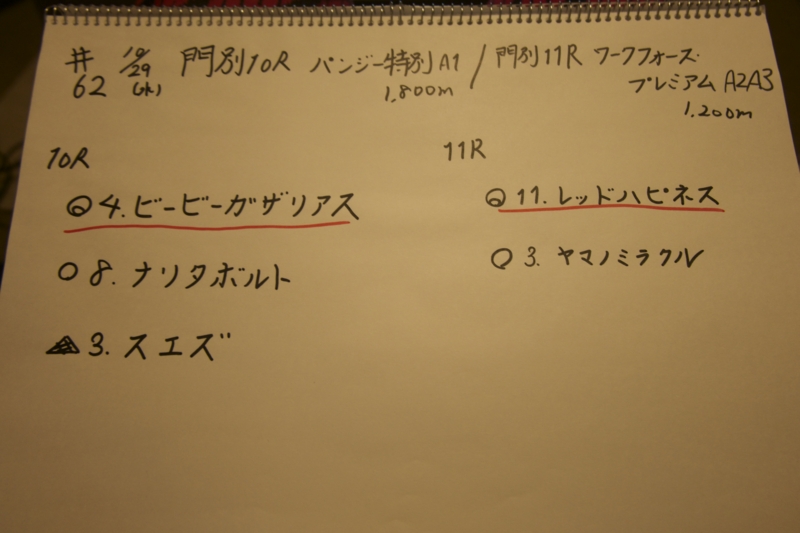 #62 10/29(水) 門別10R パンジー特別A1 / 門別11R ワークフォース
1,800m プレミアム A2A3
1,200m
10R
◎4.ビービーガザリアス
○8.ナリタボルト
▲3.スエズ
11R
◎11.レッドハピネス
○3.ヤマノミラクル